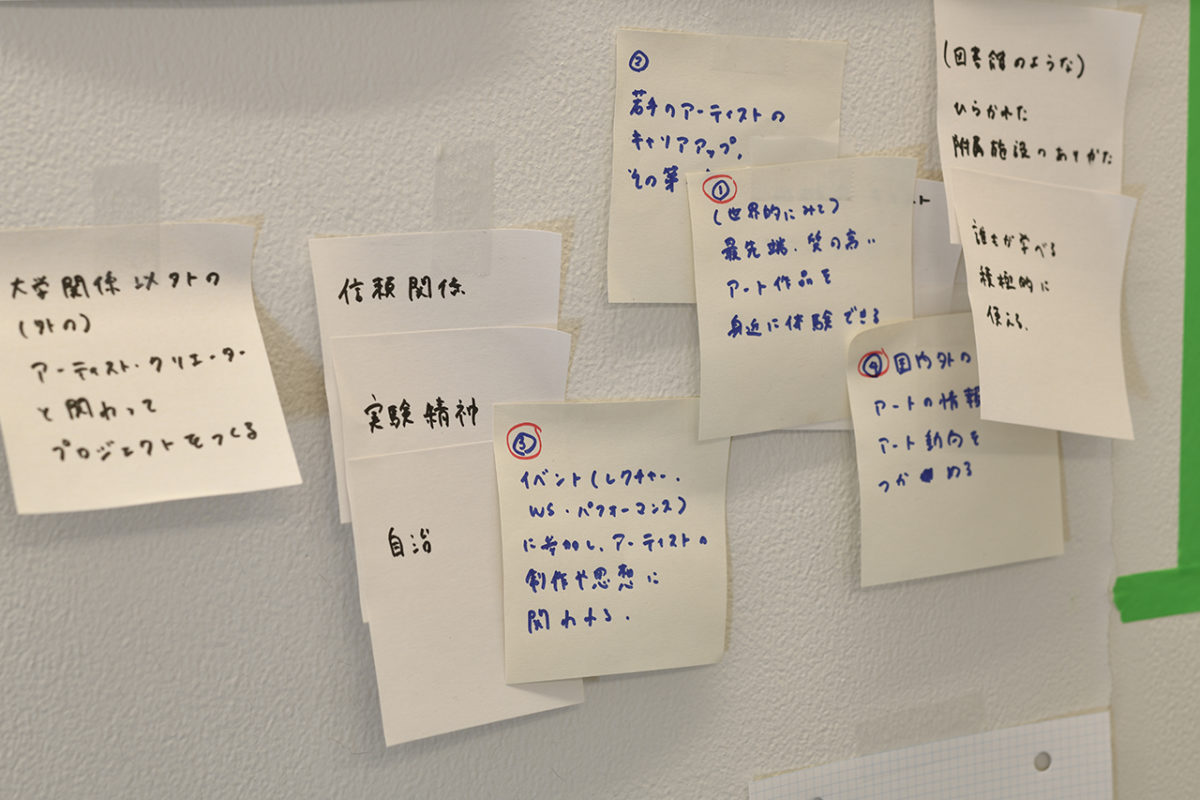 大学関係以外の
(外の)
アーティスト・クリエーター
と関わって
プロジェクトをつくる
信頼関係
実験精神
自治
③
イベント(レクチャー.
WS・パフォーマンス)
に参加し、アーティストの
制作や思想に
関われる.
②
若手のアーティストの
キャリアアップ,
その第
①
(世界的にみて)
最先端・質の高い
アート作品を
身近に体験できる
④ 国内外の
アートの情報
アート動向を
つかめる
(図書館のような)
ひらかれた
附属施設のありかた
誰もが学べる
積極的に
使える.